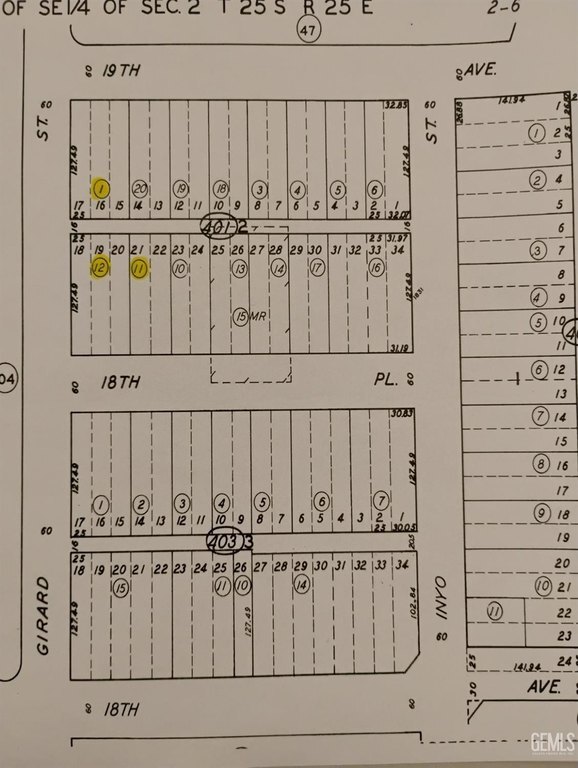 OF SE1/4 OF SEC. 2 T 25 S R 25 E 2-6
47
60 19TH AVE. 60
60 60
ST. ST.
32.85
127.49 127.49
1 20 19 18 3 4 5 6
17 16 15 14 13 12 11 10 9 8 7 6 5 4 3 2 1
25 25 32.07
16 401 2 16
25 25 31.97
18 19 20 21 22 23 24 25 26 27 28 29 30 31 32 33 34
12 11 10 13 14 17 16
127.49 127.49
15 MR
31.19
04
60 18TH PL. 60
30.83
127.49 127.49
1 2 3 4 5 6 7
17 16 15 14 13 12 11 10 9 8 7 6 5 4 3 2 1
25 25 30.05
60
16 403 3 20.5
25
18 19 20 21 22 23 24 25 26 27 28 29 30 31 32 33 34
15 11 10 14
127.49 127.49 102.84
GIRARD INYO
60
60 18TH AVE. 60
141.94
26.88
1
1 2 25
3
2 4
5
6
3 7
8
4 9
5 10
11
6 12
13
7 14
15
8 16
17
9 18
19
20
10 21
11 22
23
25 24
141.94
30
GEMLS